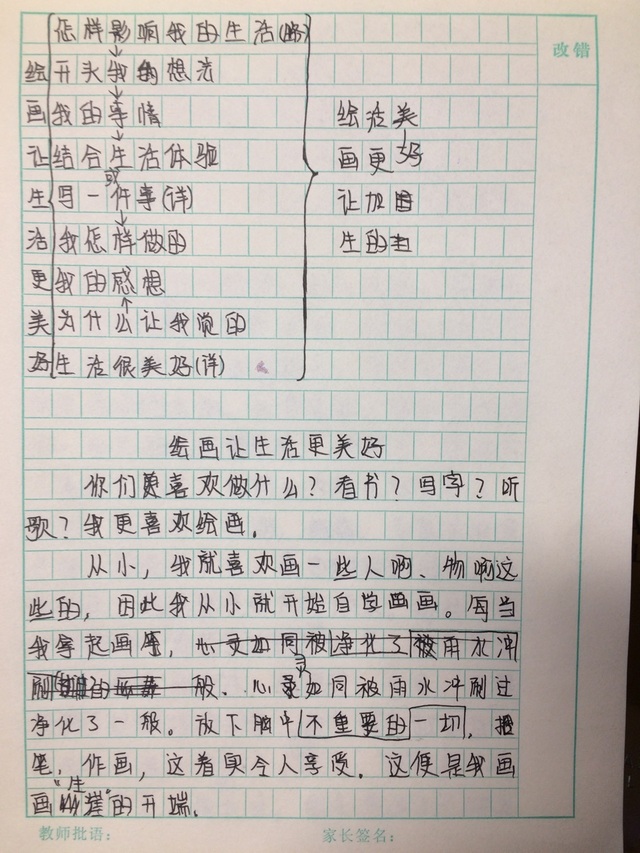 改错
怎样影响我的生活(略)
绘开头我的想法
画我的事情
让结合生活体验
或
生写一件事(详)
活我怎样做的
更我的感想
美为什么让我觉的
好生活很美好(详)
绘活美
画更好
让加
生的
绘画让生活更美好
你们更喜欢做什么?看书?写字?听
歌?我更喜欢绘画。
从小,我就喜欢画一些人啊、物啊这
些的,因此我从小就开始自学画画。每当
我拿起画笔,心灵如同被净化了被雨水冲
刷 的 一般、心灵如同被雨水冲刷过
净化了一般。放下脑中不重要的一切,握
笔,作画,这着实令人享受。这便是我画
画生涯的开端。
教师批语: 家长签名: